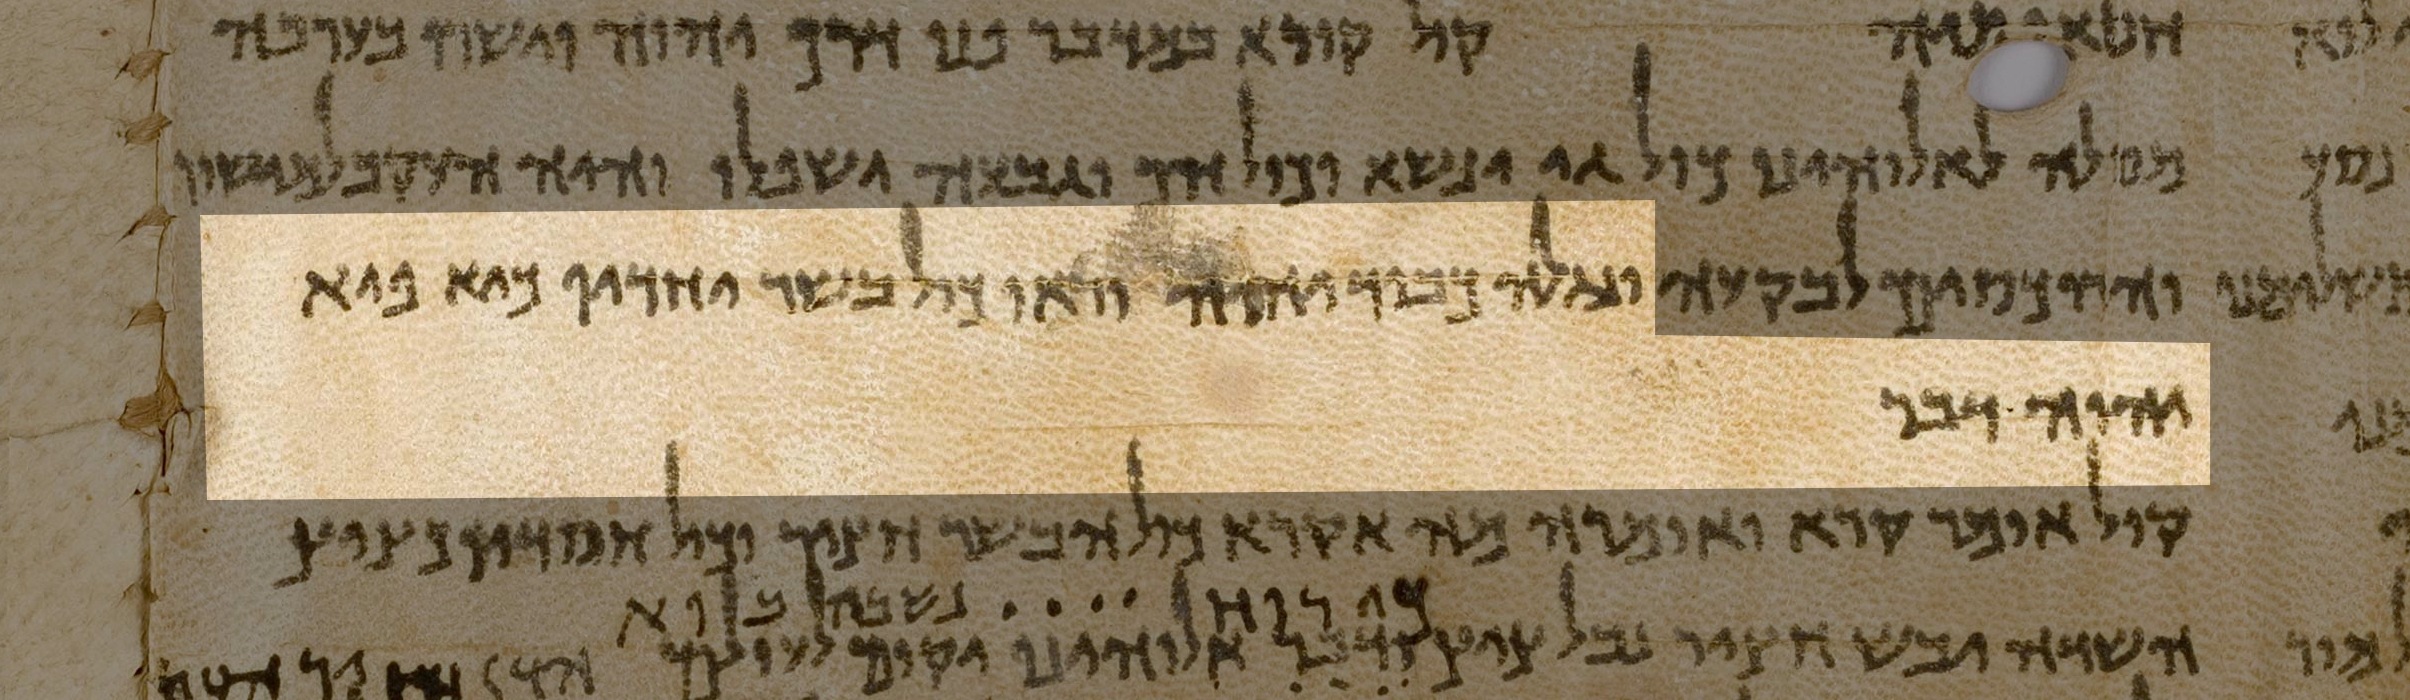 חטאותיה קול קורא במדבר פנו דרך יהוה וישרו בערבה
מסלה לאלוהינו כול גי ינשא וכול הר וגבעה ישפלו והיה העקב למישור
והרוכסים לבקעה ונגלה כבוד יהוה וראו כול בשר יחדיו כיא פיא
יהוה דבר
קול אומר קרא ואומרה מה אקרא כול הבשר חציר וכול חסדיו כציץ
כי רוח •••• נשבה בוא
השדה יבש חציר נבל ציץ ודבר אלוהינו יקום לעולם